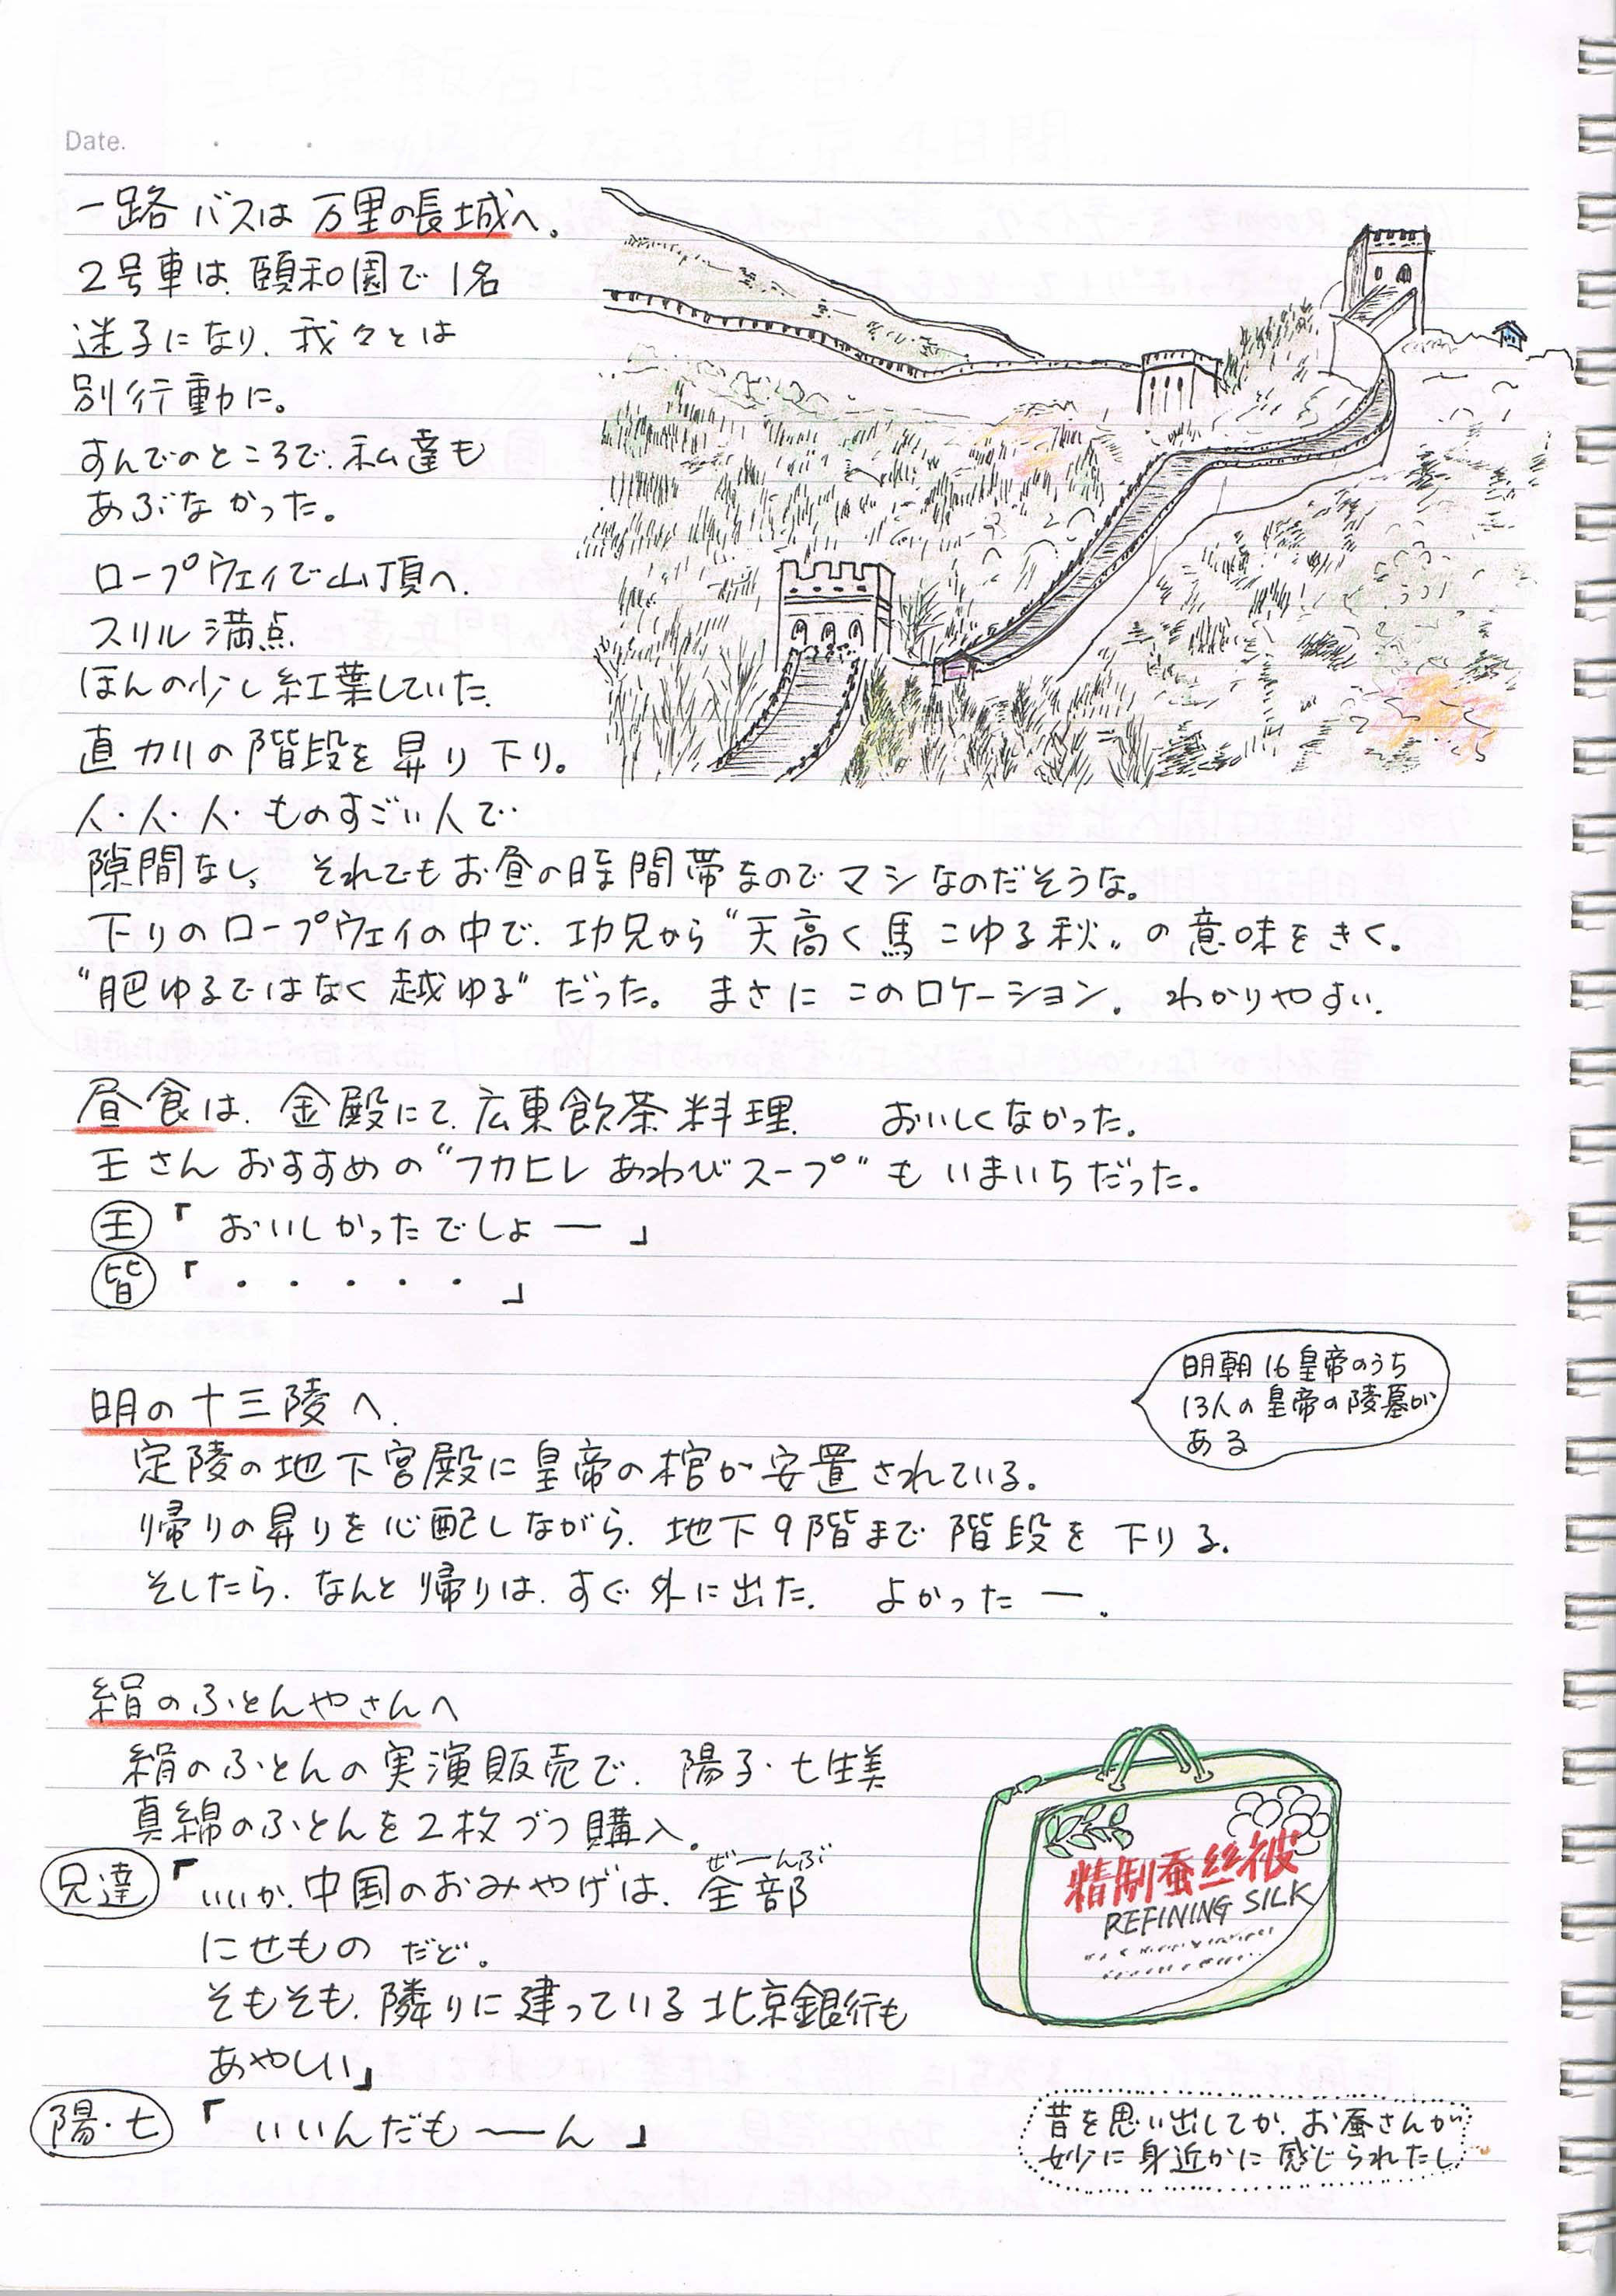 Date.
一路バスは万里の長城へ。
2号車は、頤和園で1名
迷子になり、我々とは
別行動に。
すんでのところで、私達も
あぶなかった。
ロープウェイで山頂へ、
スリル満点、
ほんの少し紅葉していた。
直カ川の階段を昇り下り。
人・人・人・ものすごい人で‥
隙間なし、それでもお昼の時間帯なのでマシなのだそうな。
下りのロープウェイの中で、功兄から“天高く馬こゆる秋〟の意味をきく。
“肥ゆるではなく越ゆる”だった。まさにこのロケーション。わかりやすい。
昼食は、金殿にて、広東飲茶料理、おいしくなかった。
王さんおすすめの“フカヒレあわびスープ”もいまいちだった。
王「おいしかったでしょー」
皆「・・・・・」
明朝16皇帝のうち
13人の皇帝の陵墓が
ある
明の十三陵へ、
定陵の地下宮殿に皇帝の棺が安置されている。
帰りの昇りを心配しながら、地下9階まで階段を下りる。
そしたら、なんと帰りは、すぐ外に出た。よかったー。
絹のふとんやさんへ
絹のふとんの実演販売で、陽子・七生美
真綿のふとんを2枚づつ購入。
兄達「いいか、中国のおみやげは、全部
ぜーんぶ
にせものだど。
そもそも、隣りに建っている北京銀行も
あやしい」
陽・七「いいんだも〜ん」
精制蚕丝被
REFINING SILK
昔を思い出してか、お蚕さんが
妙に身近かに感じられたし